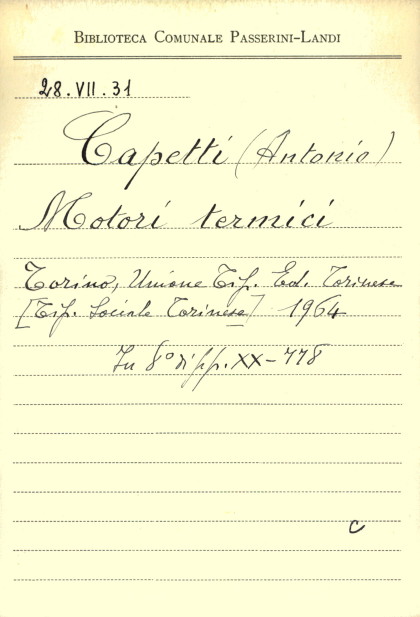 BIBLIOTECA COMUNALE PASSERINI-LANDI
28.VII.31
Capetti (Antonio)
Motori termici
Torino, Unione Tip. Ed. Torinese
[Tip. Sociale Torinese] 1964
In 8° di pp. XX-778
C